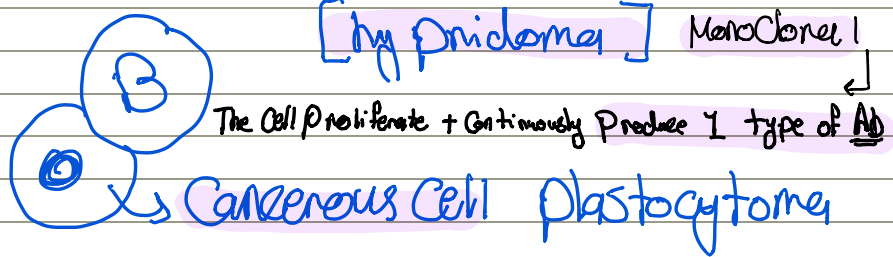 [hy pridoma] Monoclonal
B
The Cell Proliferate + Continuously Produce 1 type of Ab
Cancerous Cell plastocytoma